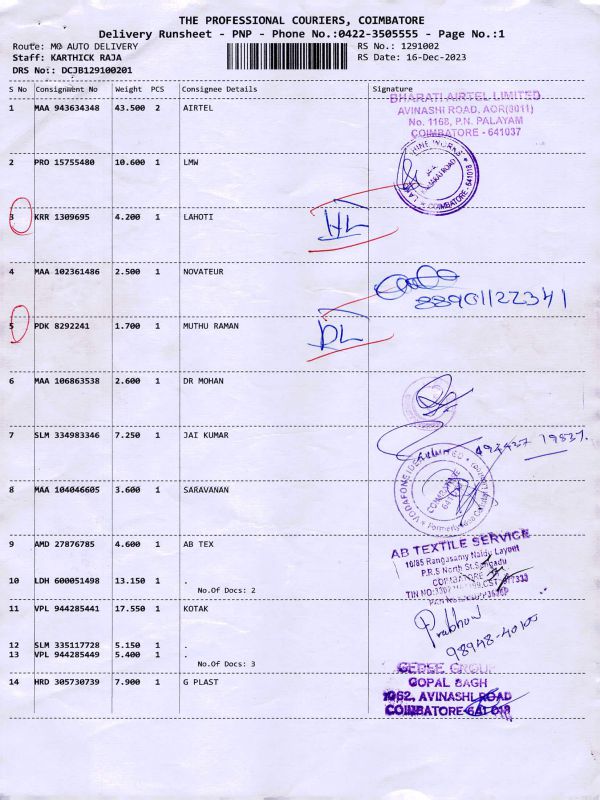 THE PROFESSIONAL COURIERS, COIMBATORE
Delivery Runsheet - PNP - Phone No.:0422-3505555 - Page No.:1
Route: M0 AUTO DELIVERY
RS No.: 1291002
Staff: KARTHICK RAJA
RS Date: 16-Dec-2023
DRS No:: DCJB129100201
S No Consignment No Weight PCS Consignee Details Signature
1 MAA 943634348 43.500 2 AIRTEL
BHARATI AIRTEL LIMITED
AVINASHI ROAD, AOR(0011)
No. 1168, P.N. PALAYAM
COIMBATORE - 641037
2 PRO 15755480 10.600 1 LMW
COIMBATORE - 641018
3 KRR 1309695 4.200 1 LAHOTI
HL
4 MAA 102361486 2.500 1 NOVATEUR
5 PDK 8292241 1.700 1 MUTHU RAMAN
DL
6 MAA 106863538 2.600 1 DR MOHAN
7 SLM 334983346 7.250 1 JAI KUMAR
8 MAA 104046605 3.600 1 SARAVANAN
VODAFONE IDEA LIMITED
COIMBATORE
9 AMD 27876785 4.600 1 AB TEX
AB TEXTILE SERVICE
10/85 Rangasamy Naidu Layout
P.R.S North St.
COIMBATORE
10 LDH 600051498 13.150 1 .
No.Of Docs: 2
11 VPL 944285441 17.550 1 KOTAK
Prabhu
98948-40105
12 SLM 335117728 5.150 1 .
13 VPL 944285449 5.400 1 .
No.Of Docs: 3
14 HRD 305730739 7.900 1 G PLAST
GEREE GROUP
GOPAL BAGH
1062, AVINASHI ROAD
COIMBATORE-641 018